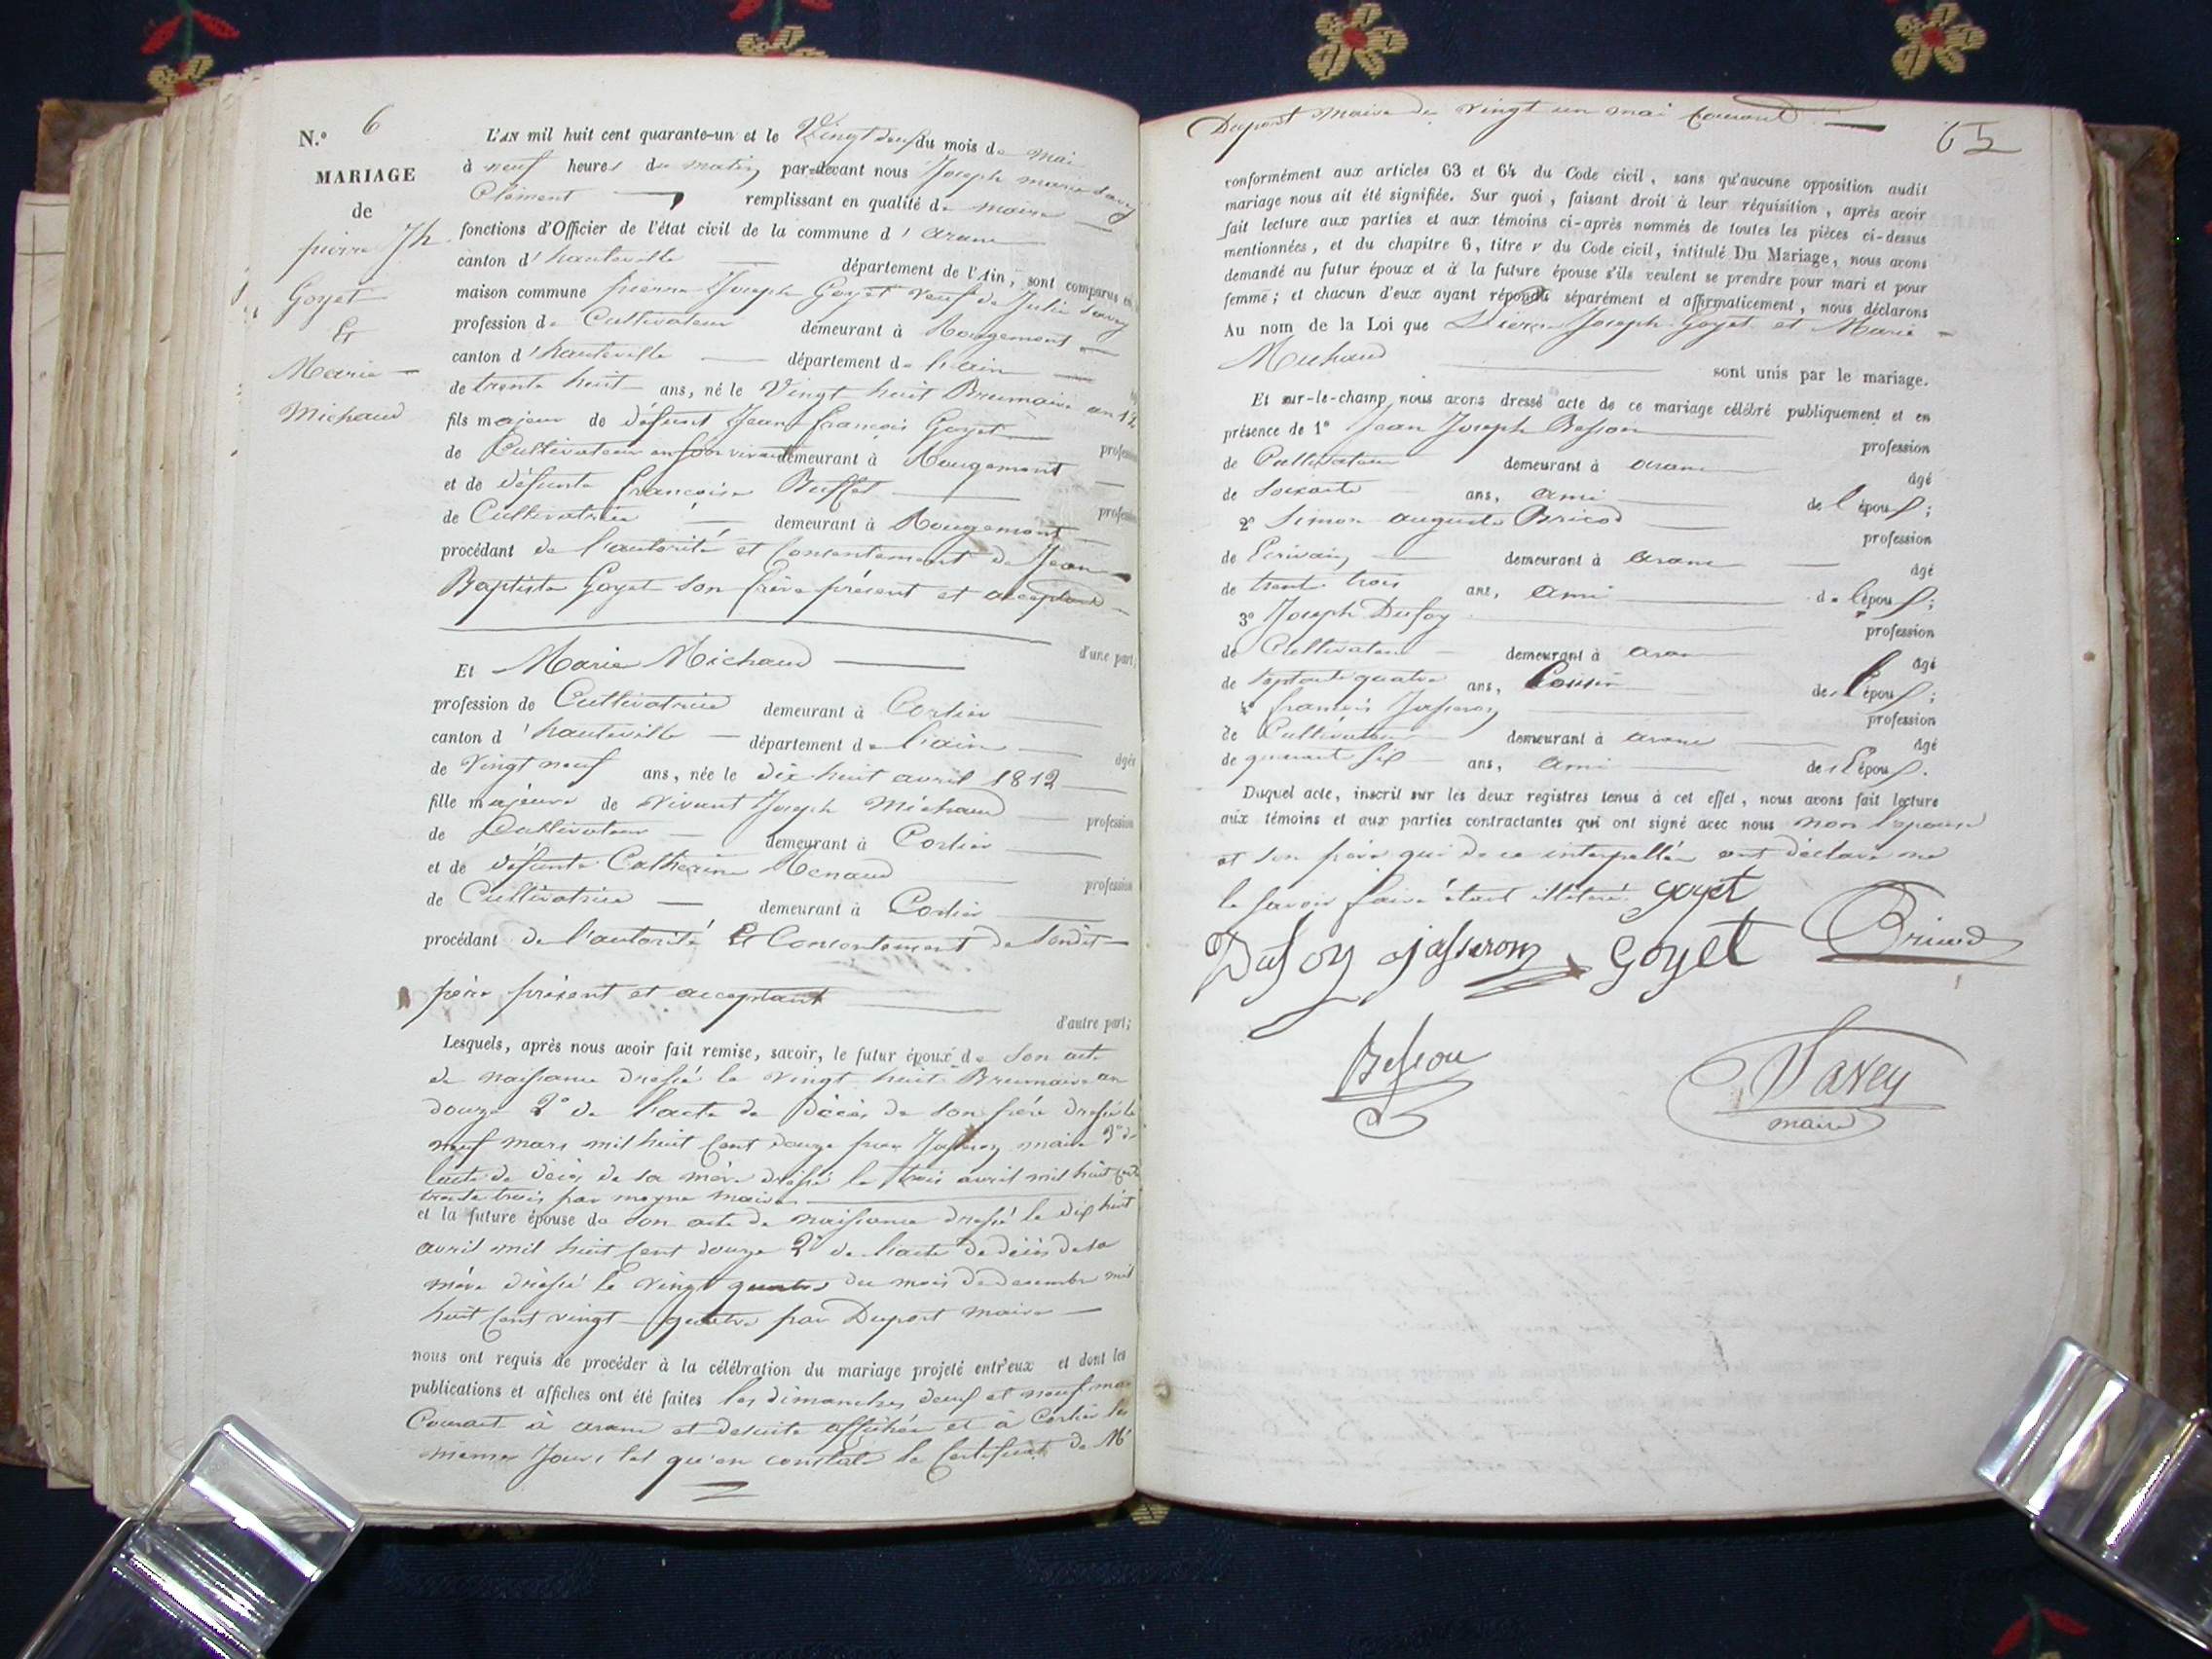 N.° 6
MARIAGE
de
pierre Jh
Goyet
Et
Marie
Michaud
L'AN mil huit cent quarante-un et le Vingt deux du mois de Mai
à neuf heures du matin par-devant nous Joseph marie Savey
Clément remplissant en qualité de maire
fonctions d'Officier de l'état civil de la commune d'arane
canton d'hauteville département de l'Ain, sont comparus en
maison commune pierre Joseph Goyet veuf de Julie Savey
profession de Cultivateur demeurant à Rougemont
canton d'hauteville département de l'ain
de trente huit ans, né le Vingt huit Brumaire an 12
fils majeur de défunt Jean françois Goyet
de Cultivateur en son vivant demeurant à Rougemont
et de défunte françoise Buffet
de Cultivatrice demeurant à Rougemont
procédant de l'autorité et Consentement de Jean
Baptiste Goyet son frère présent et acceptant
d'une part;
Et Marie Michaud
profession de Cultivatrice demeurant à Corlier
canton d'hauteville département de l'ain
de Vingt neuf ans, née le dix huit avril 1812
fille majeure de vivant Joseph Michaud
de Cultivateur demeurant à Corlier
et de défunte Catherine Renaud
de Cultivatrice demeurant à Corlier
procédant de l'autorité Et Consentement de sondit
père présent et acceptant
d'autre part;
Lesquels, après nous avoir fait remise, savoir, le futur époux de son acte
de naissance dressé le vingt huit Brumaire an
douze 2° de l'acte de décès de son père dressé le
neuf mars mil huit cent douze par Jasseron maire 3° de
l'acte de décès de sa mère dressé le trois avril mil huit cent
trente trois par moyne maire
et la future épouse de son acte de naissance dressé le dix huit
avril mil huit cent douze 2° de l'acte de décès de sa
mère dressé le vingt quatre du mois de decembre mil
huit cent vingt quatre par Duport maire
nous ont requis de procéder à la célébration du mariage projeté entr'eux et dont les
publications et affiches ont été faites les dimanches deux et neuf mai
Courant à arane et desuite affichée et à Corlier les
meme Jours tel qu'en constate le Certificat de Mr
Duport maire du vingt un mai Courant
65
conformément aux articles 63 et 64 du Code civil, sans qu'aucune opposition audit
mariage nous ait été signifiée. Sur quoi, faisant droit à leur réquisition, après avoir
fait lecture aux parties et aux témoins ci-après nommés de toutes les pièces ci-dessus
mentionnées, et du chapitre 6, titre v du Code civil, intitulé Du Mariage, nous avons
demandé au futur époux et à la future épouse s'ils veulent se prendre pour mari et pour
femme; et chacun d'eux ayant répondu séparément et affirmativement, nous déclarons
Au nom de la Loi que Pierre Joseph Goyet et Marie
Michaud sont unis par le mariage.
Et sur-le-champ nous avons dressé acte de ce mariage célébré publiquement et en
présence de 1° Jean Joseph Besson profession
de Cultivateur demeurant à arane âgé
de soixante ans, ami de l'époux;
2° Simon auguste Bricod profession
de Ecrivain demeurant à arane âgé
de trente trois ans, ami de l'époux;
3° Joseph Dufoy profession
de Cultivateur demeurant à arane âgé
de septante quatre ans, Cousin de l'époux;
4° françois Jasseron profession
de Cultivateur demeurant à arane âgé
de quarante six ans, ami de l'Epoux.
Duquel acte, inscrit sur les deux registres tenus à cet effet, nous avons fait lecture
aux témoins et aux parties contractantes qui ont signé avec nous non l'epouse
et son père qui de ce interpellée ont déclaré ne
le savoir faire étant illetéré. goyet
Dufoy jasseron Goyet Bricod
Besson Savey
maire